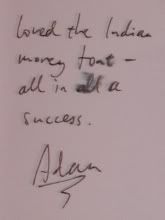 Loved the Indian
money font –
all in all a
success.
Adam